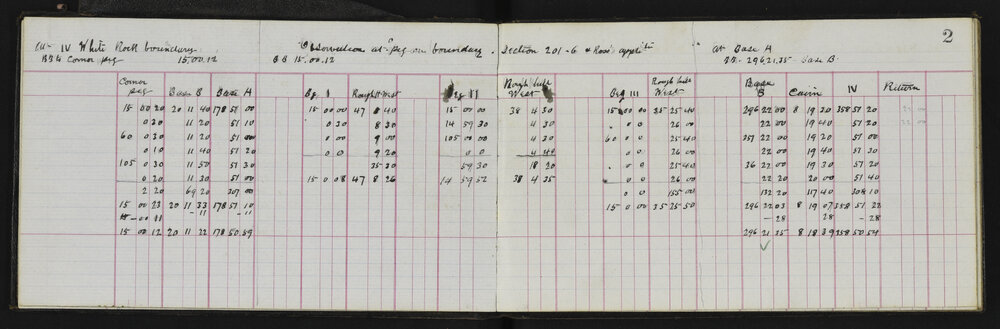 2
At IV White Rock boundary
BB4 Corner peg 15.00.12
Observation at peg on boundary. Section 201-6 & Road opposite
BB 15.00.12
At Base A
BB. 296 21.35 Base B
Corner peg Base B Base A
15 00 20 20 11 40 178 51 00
0 30 11 20 51 10
60 0 30 11 20 51 00
0 10 11 40 51 20
105 0 30 11 50 51 30
0 20 11 30 51 00
2 20 69 20 307 00
15 00 23 20 11 33 178 51 10
- 11 - 11
15 00 12 20 11 22 178 50 59
Bg I Rough Hill West Bg II Rough hill West
15 00 00 47 8 40 15 00 00 38 4 30
0 30 8 30 14 59 30 4 30
0 00 9 00 105 00 00 4 30
0 0 9 20 0 0 4 40
35 30 59 30 18 20
15 0 08 47 8 26 14 59 52 38 4 35
Bg III Rough hill West
15 00 00 35 25 40
0 0 26 00
60 0 0 25 40
0 0 26 00
0 0 25 40
0 0 26 00
0 00 155 00
15 0 00 35 25 50
Base B Cairn IV Return
296 22 00 8 19 20 358 51 20 22 00
22 00 19 40 51 20 22 00
257 22 00 19 20 51 00
22 00 19 40 51 30
36 22 00 19 30 51 20
22 20 20 00 51 40
132 20 117 40 308 10
296 22 03 8 19 07 358 51 22
- 28 28 - 28
296 21 35 8 18 39 358 50 54